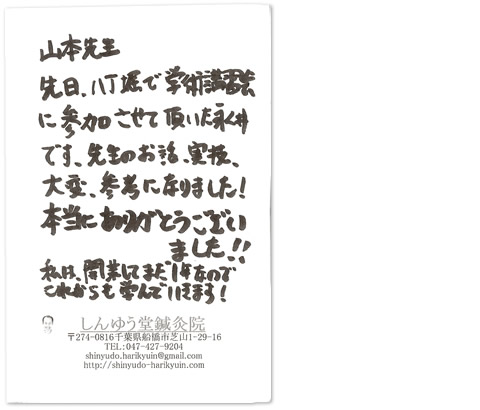 山本先生
先日、八丁堀で学術講習会
に参加させて頂いた永井
です。先生のお話、実技、
大変、参考になりました!
本当にありがとうござい
ました!!
私は、開業してまだ1年なので
これからも学んでいきます!
しんゆう堂鍼灸院
〒274-0816千葉県船橋市芝山1-29-16
TEL:047-427-9204
shinyudo.harikyuin@gmail.com
http://shinyudo-harikyuin.com